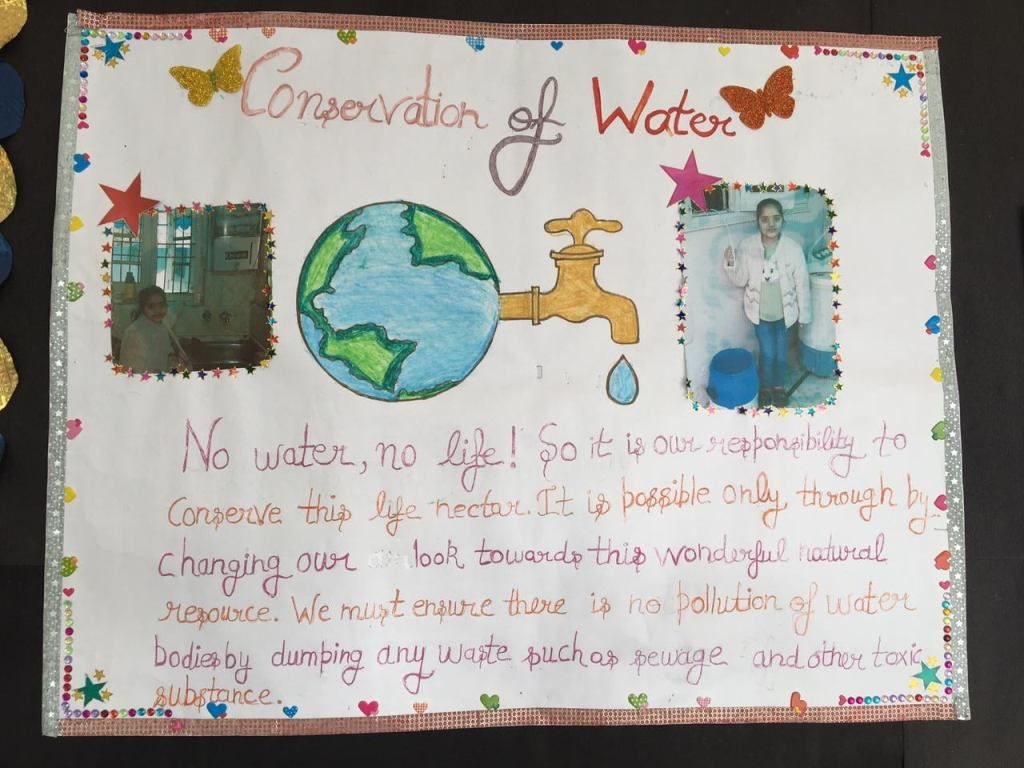 Conservation of Water
No water, no life! So it is our responsibility to
Conserve this life nectar. It is possible only through by
changing our look towards this wonderful natural
resource. We must ensure there is no pollution of water
bodies by dumping any waste such as sewage and other toxic
substance.